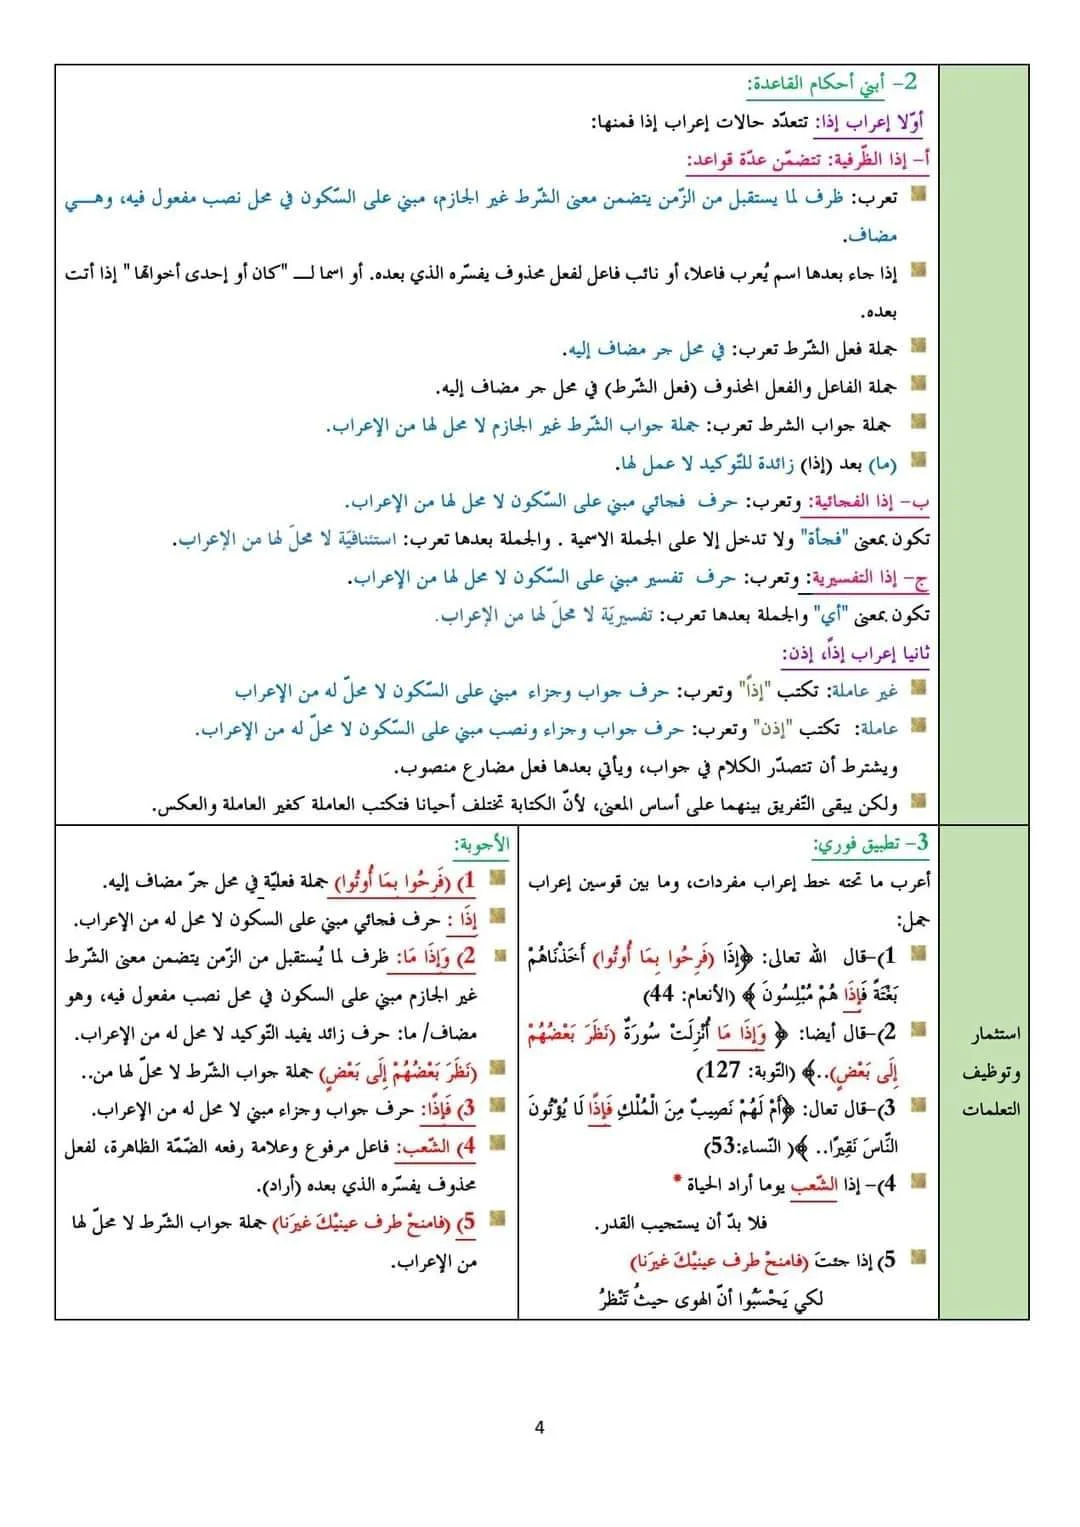 2- أبني أحكام القاعدة:
أوّلا إعراب إذا: تتعدّد حالات إعراب إذا فمنها:
أ- إذا الظّرفية: تتضمّن عدّة قواعد:
تعرب: ظرف لما يستقبل من الزّمن يتضمن معنى الشّرط غير الجازم، مبني على السّكون في محل نصب مفعول فيه، وهـــي
مضاف.
إذا جاء بعدها اسم يُعرب فاعلا، أو نائب فاعل لفعل محذوف يفسّره الذي بعده. أو اسما لـــ "كان أو إحدى أخواتها" إذا أتت
بعده.
جملة فعل الشّرط تعرب: في محل جر مضاف إليه.
جملة الفاعل والفعل المحذوف (فعل الشّرط) في محل جر مضاف إليه.
جملة جواب الشرط تعرب: جملة جواب الشّرط غير الجازم لا محل لها من الإعراب.
(ما) بعد (إذا) زائدة للتّوكيد لا عمل لها.
ب- إذا الفجائية: وتعرب: حرف فجائي مبني على السّكون لا محل لها من الإعراب.
تكون بمعنى "فجأة" ولا تدخل إلا على الجملة الاسمية . والجملة بعدها تعرب: استئنافيّة لا محلّ لها من الإعراب.
ج- إذا التفسيرية: وتعرب: حرف تفسير مبني على السّكون لا محل لها من الإعراب.
تكون بمعنى "أي" والجملة بعدها تعرب: تفسيريّة لا محلّ لها من الإعراب.
ثانيا إعراب إذاً، إذن:
غير عاملة: تكتب "إذاً" وتعرب: حرف جواب وجزاء مبني على السّكون لا محلّ له من الإعراب
عاملة: تكتب "إذن" وتعرب: حرف جواب وجزاء ونصب مبني على السّكون لا محلّ له من الإعراب.
ويشترط أن تتصدّر الكلام في جواب، ويأتي بعدها فعل مضارع منصوب.
ولكن يبقى التّفريق بينهما على أساس المعنى، لأنّ الكتابة تختلف أحيانا فتكتب العاملة كغير العاملة والعكس.
استثمار
وتوظيف
التعلمات
3- تطبيق فوري:
أعرب ما تحته خط إعراب مفردات، وما بين قوسين إعراب
جمل:
1)-قال الله تعالى: ﴿إِذَا (فَرِحُوا بِمَا أُوتُوا) أَخَذْنَاهُمْ
بَغْتَةً فَإِذَا هُمْ مُبْلِسُونَ ﴾ (الأنعام: 44)
2)-قال أيضا: ﴿ وَإِذَا مَا أُنْزِلَتْ سُورَةٌ (نَظَرَ بَعْضُهُمْ
إِلَى بَعْضٍ)..﴾ (التّوبة: 127)
3)-قال تعال: ﴿أَمْ لَهُمْ نَصِيبٌ مِنَ الْمُلْكِ فَإِذًا لَا يُؤْتُونَ
النَّاسَ نَقِيرًا.. ﴾( النّساء:53)
4)- إذا الشّعب يوما أراد الحياة *
فلا بدّ أن يستجيب القدر.
5) إذا جئتَ (فامنحْ طرف عينيْكَ غيرَنا)
لكي يَحْسَبُوا أنّ الهوى حيثُ تَنْظرُ
الأجوبة:
1) (فَرِحُوا بِمَا أُوتُوا) جملة فعليّة في محل جرّ مضاف إليه.
إِذَا : حرف فجائي مبني على السكون لا محل له من الإعراب.
2) وَإِذَا مَا: ظرف لما يُستقبل من الزّمن يتضمن معنى الشّرط
غير الجازم مبني على السكون في محل نصب مفعول فيه، وهو
مضاف/ ما: حرف زائد يفيد التّوكيد لا محل له من الإعراب.
(نَظَرَ بَعْضُهُمْ إِلَى بَعْضٍ) جملة جواب الشّرط لا محلّ لها من..
3) فَإِذًا: حرف جواب وجزاء مبني لا محل له من الإعراب.
4) الشّعب: فاعل مرفوع وعلامة رفعه الضّمّة الظاهرة، لفعل
محذوف يفسّره الذي بعده (أراد).
5) (فامنحْ طرف عينيْكَ غيرَنا) جملة جواب الشّرط لا محلّ لها
من الإعراب.
4